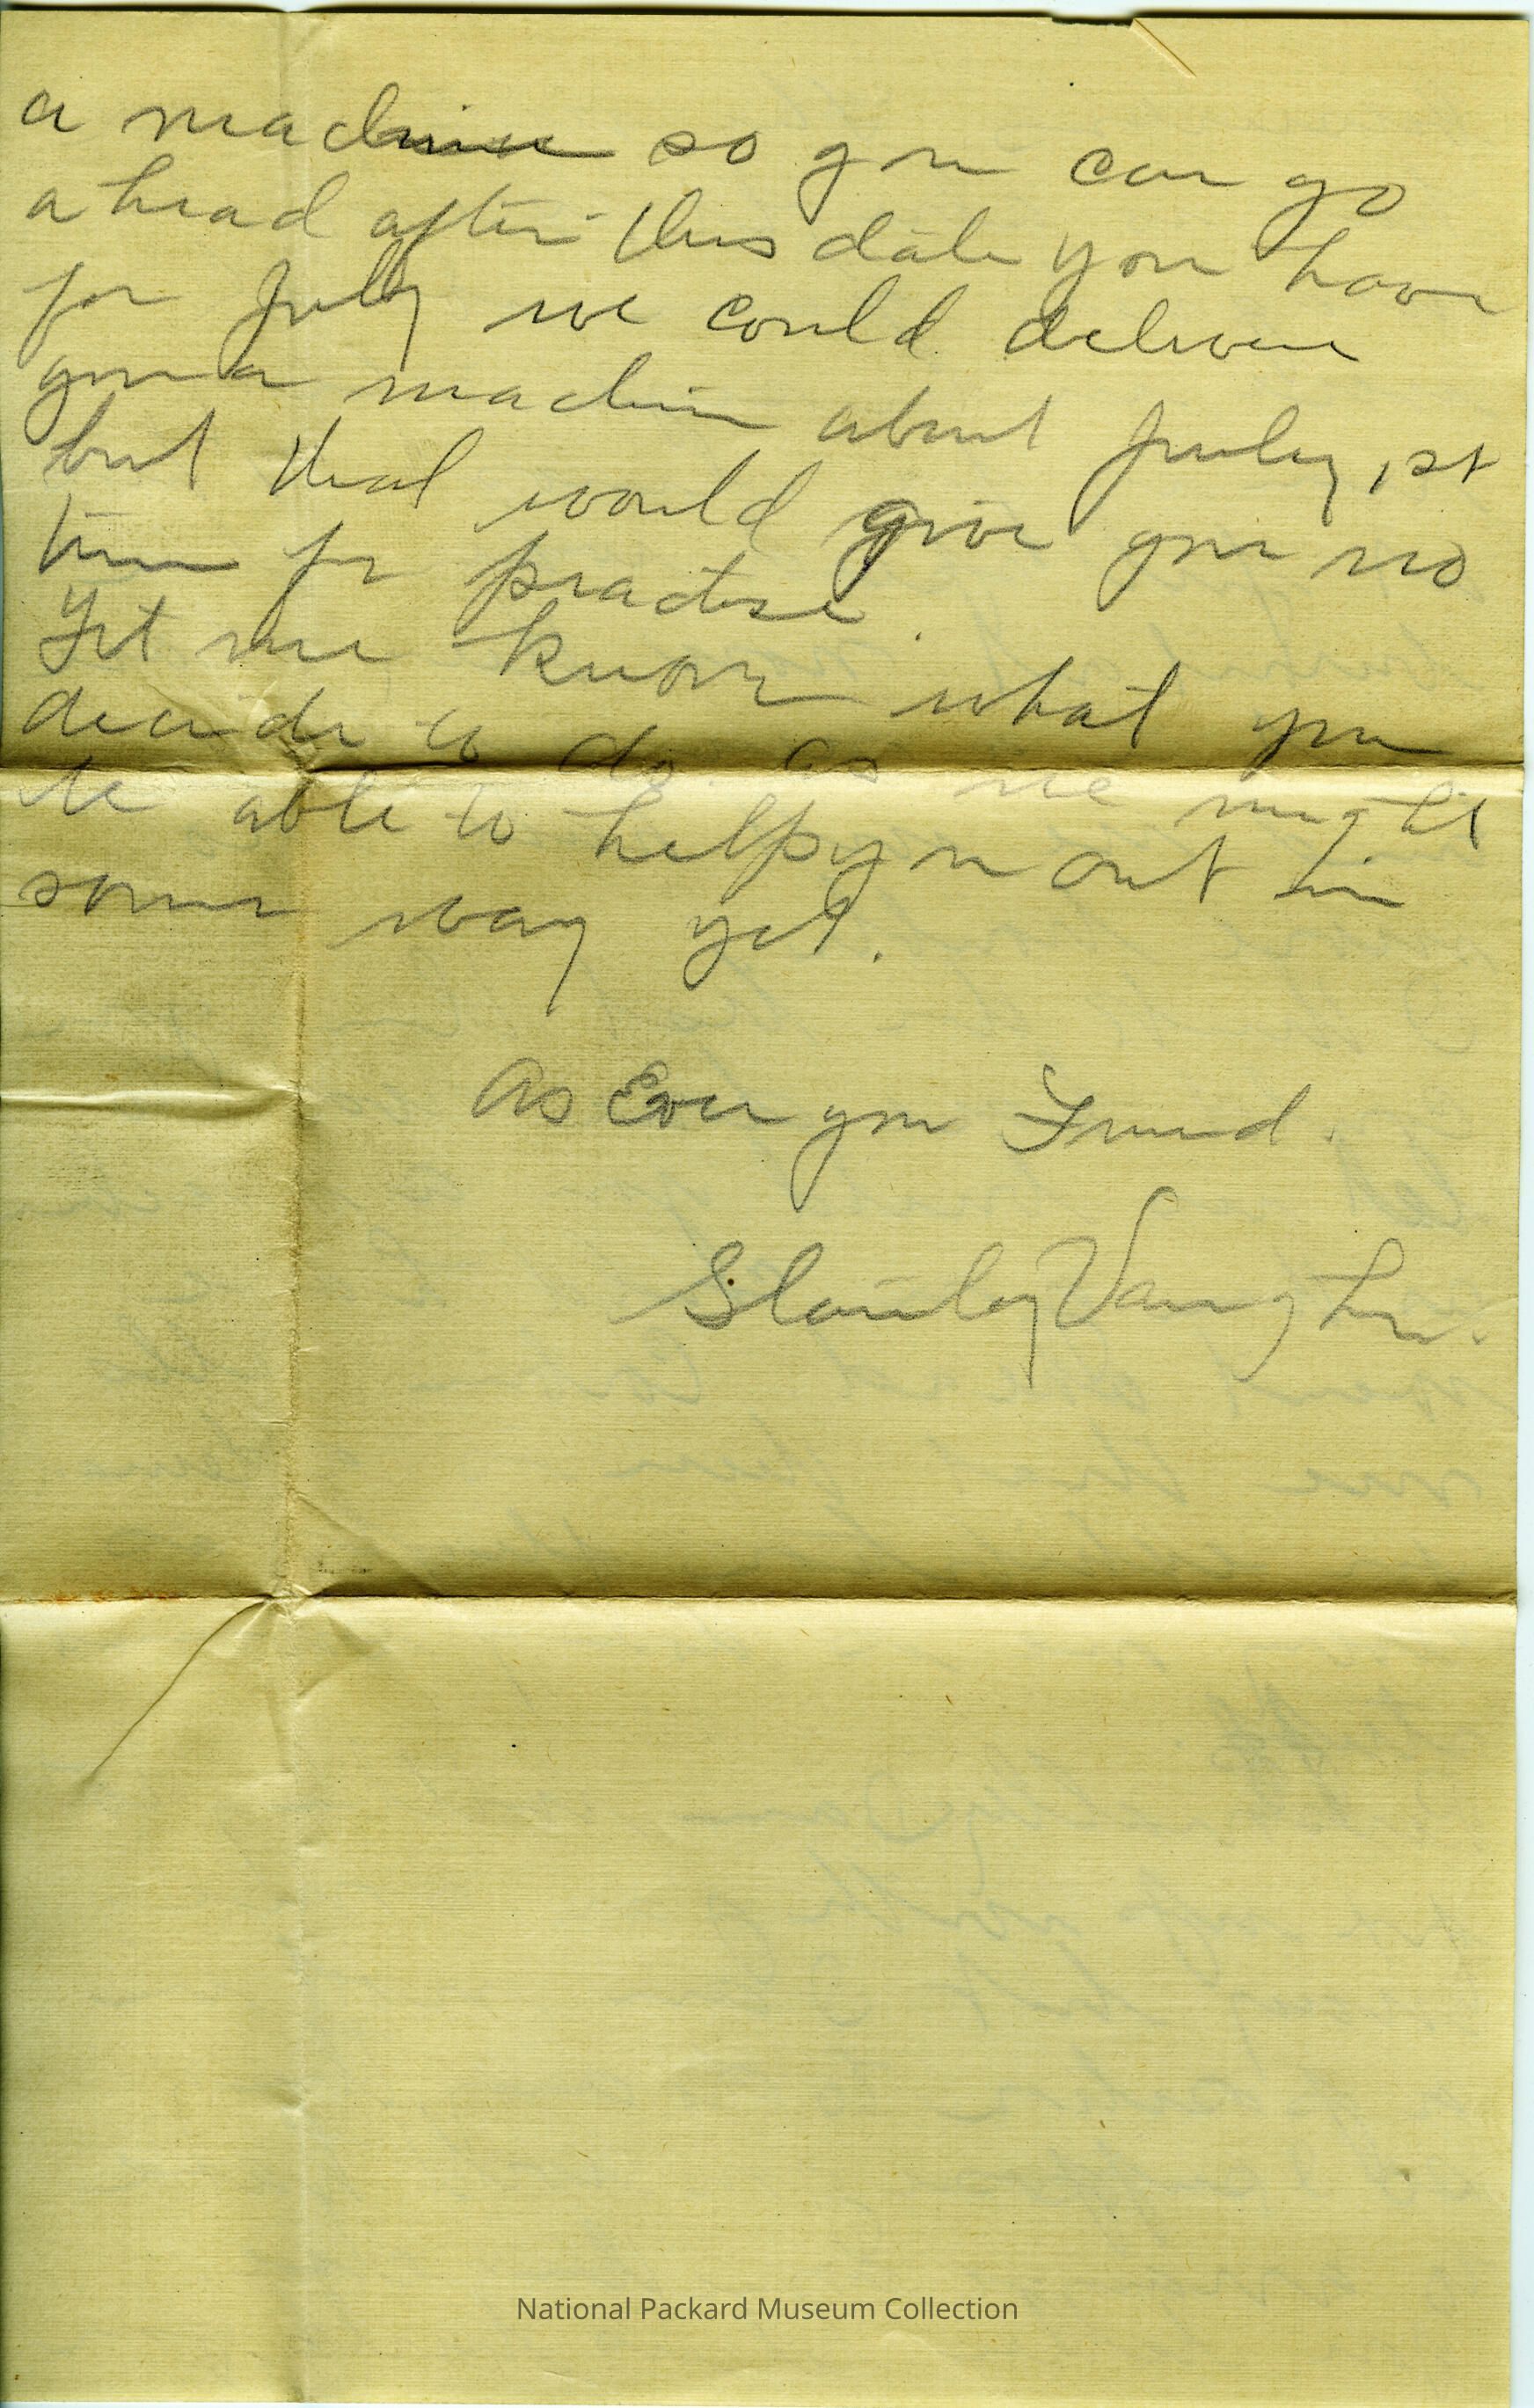 a machine so you can go
ahead after this date you have
for July we could deliver
you a machine about July 1st
but that would give you no
time for practise.
Let me know what you
decide to do as we might
be able to help you out in
some way yet.
As Ever your Friend.
Stanley Vaughn.
National Packard Museum Collection